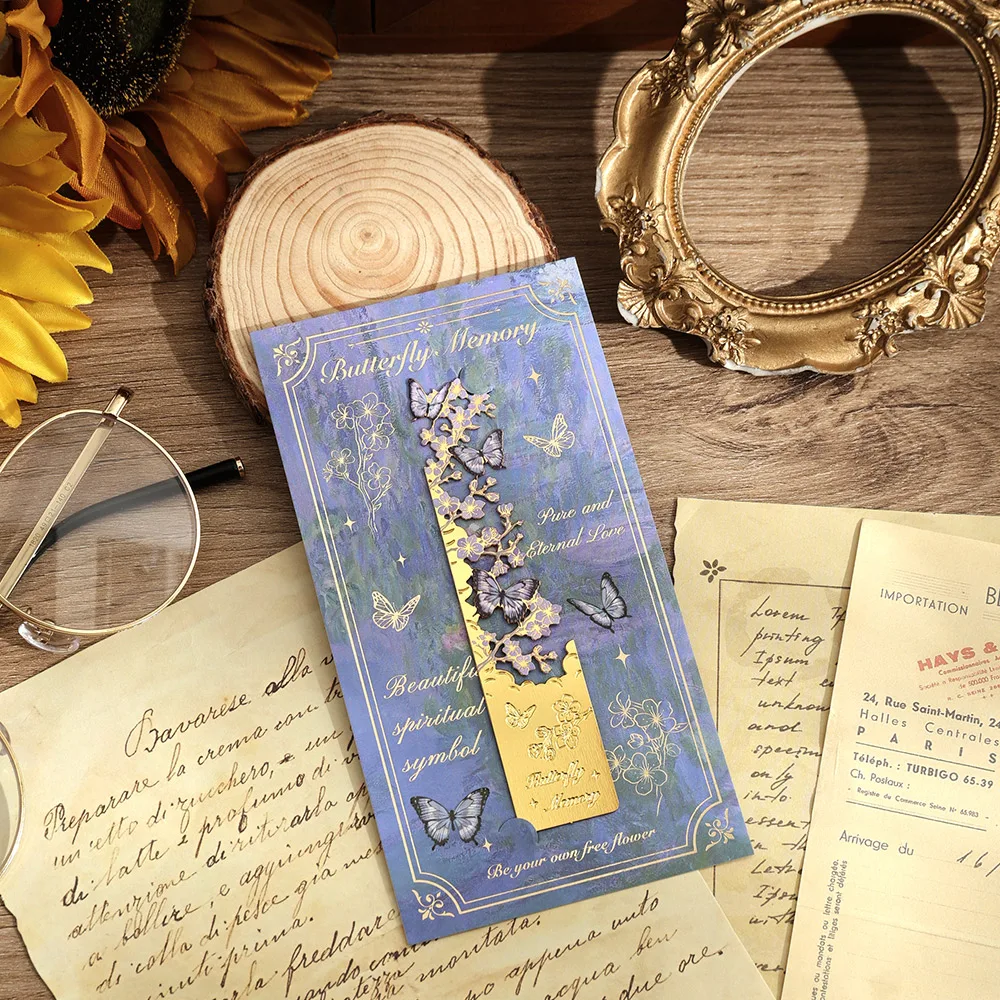 Butterfly Memory
Pure and
Eternal Love
Beautiful
spiritual
symbol
Butterfly
Memory
Be your own free flower
Bavarese alla
Preparare la crema con
un etto di zucchero, e un
di latte e profumo di
attenzione di ritirarla
bollire, e aggiungi
di colla di pesce già
prima.
freddare
montata.
appena unto
acqua ben
due ore.
Lorem
printing
Ipsum
text
unknow
and
specim
only
into
essent
with
IMPORTATION
HAYS &
24, Rue Saint-Martin, 24
Halles Centrales
PARIS
Téléph. : TURBIGO 65-39
Ch. Postaux :
Registre de Commerce Seine N° 68.983
Arrivage du